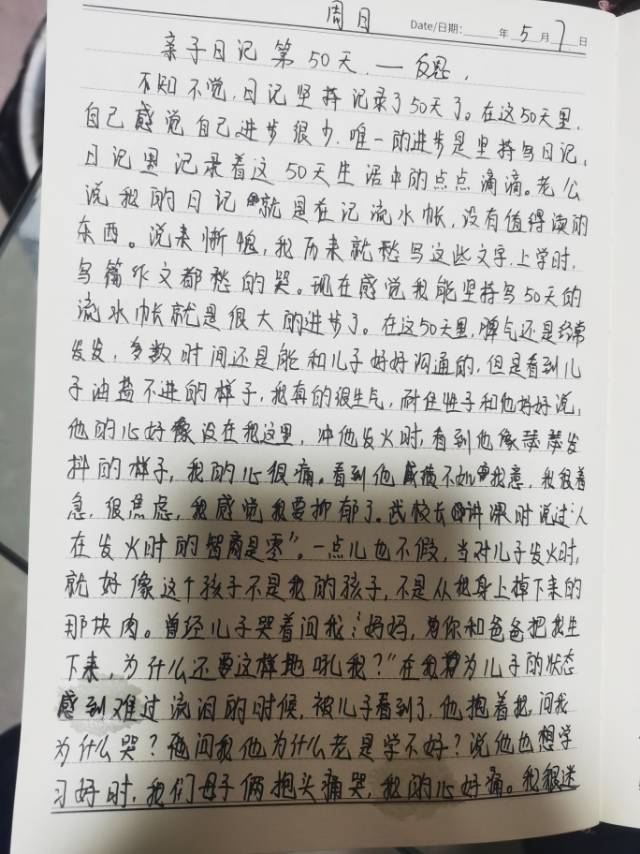 周日
Date/日期: 年 5 月 7 日
亲子日记第50天.一反思,
不知不觉,日记坚持记录了50天了。在这50天里,
自己感觉自己进步很少,唯一的进步是坚持写日记,
日记里记录着这50天生活中的点点滴滴。老公
说我的日记就是在记流水帐,没有值得读的
东西。说来惭愧,我历来就愁写这些文字,上学时,
写篇作文都愁的哭。现在感觉我能坚持写50天的
流水帐就是很大的进步了。在这50天里,脾气还是经常
发发,多数时间还是能和儿子好好沟通的,但是看到儿
子油盐不进的样子,我真的很生气,耐住性子和他好好说,
他的心好像没在我这里,冲他发火时,看到他像瑟瑟发
抖的样子,我的心很痛。看到他成绩不如我意,我很着
急,很焦虑,我感觉我要抑郁了。武校长讲课时说过"人
在发火时的智商是零"。一点儿也不假,当对儿子发火时,
就好像这个孩子不是我的孩子,不是从我身上掉下来的
那块肉。曾经儿子哭着问我:"妈妈,为你和爸爸把我生
下来,为什么还要这样地吼我?"在我为儿子的状态
感到难过流泪的时候,被儿子看到了,他抱着我,问我
为什么哭?他问我他为什么老是学不好?说他也想学
习好时,我们母子俩抱头痛哭,我的心好痛。我很迷